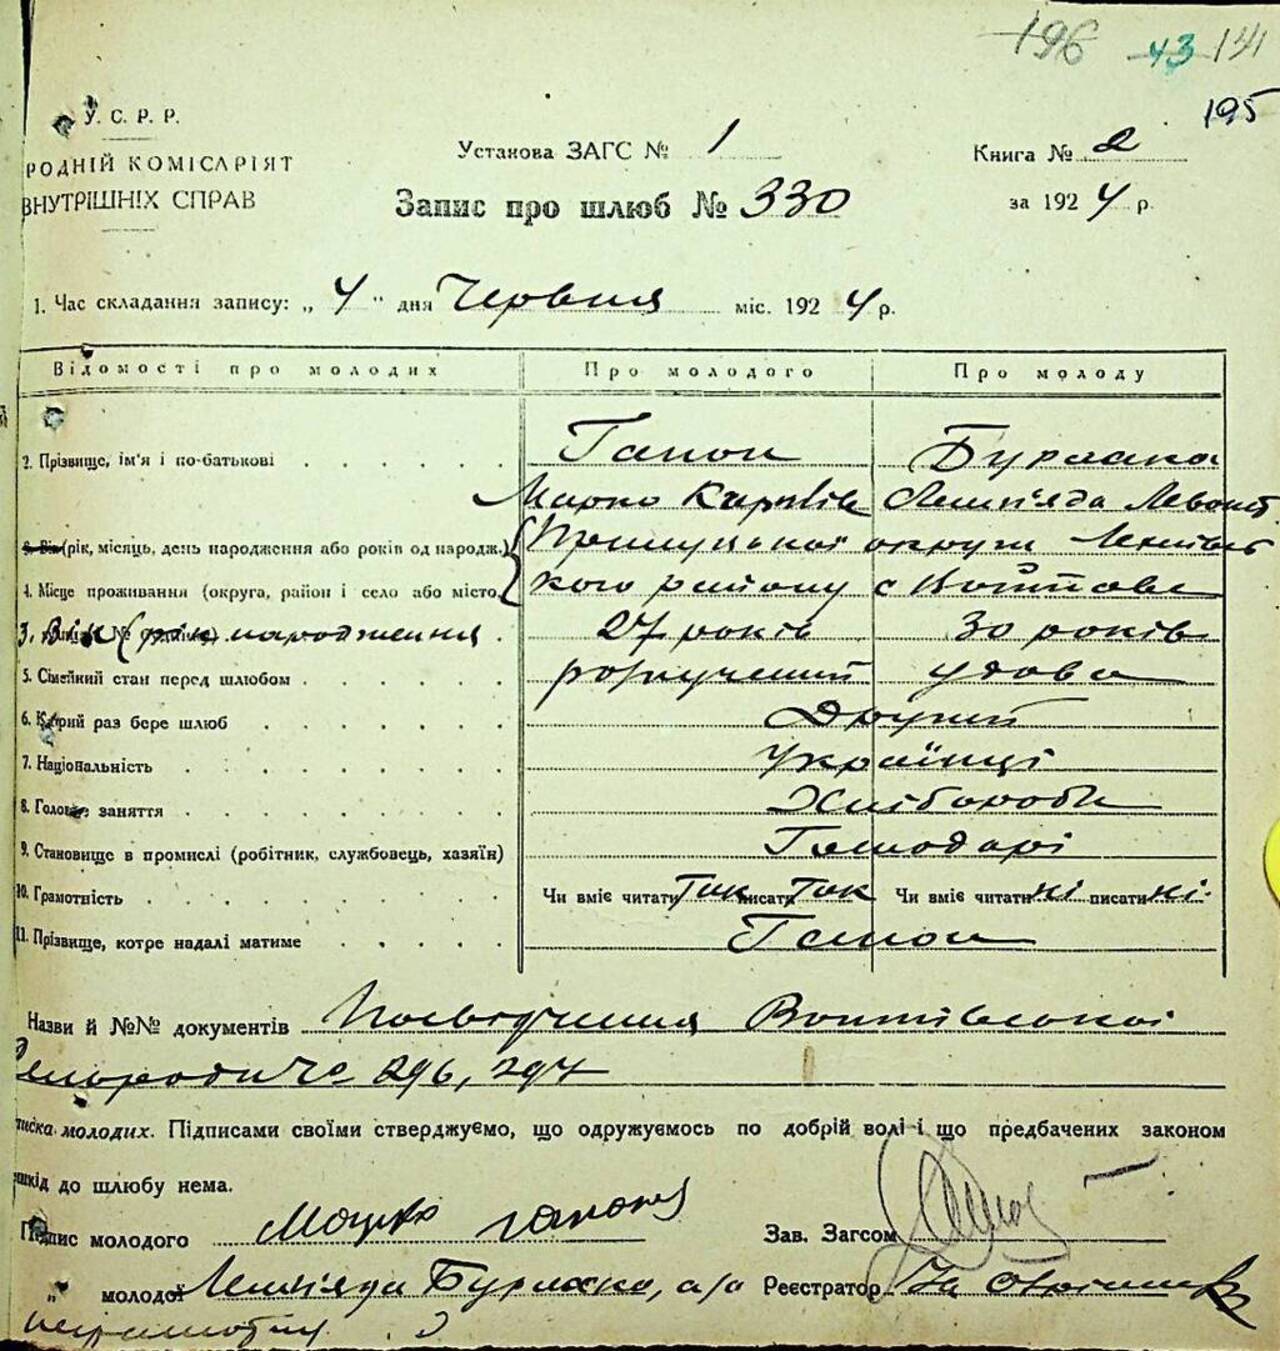 196 43 141
195
У. С. Р. Р.
РОДНІЙ КОМІСАРІЯТ
ВНУТРІШНІХ СПРАВ
Установа ЗАГС № 1
Книга № 2
Запис про шлюб № 330
за 1924 р.
1. Час складання запису: „4" дня Червня міс. 1924 р.
Відомості про молодих Про молодого Про молоду
2. Прізвище, ім'я і по-батькові Гапон Бурлака
Марко Карпів
(рік, місяць, день народження або років од народж.) Прилуцької округи
4. Місце проживання (округа, район і село або місто, кого району с
3. Вік (рік народження 27 років 30 років
5. Сімейний стан перед шлюбом розлучений удова
6. Котрий раз бере шлюб Другий
7. Національність Українці
8. Головне заняття Хлібороби
9. Становище в промислі (робітник, службовець, хазяїн) Господарі
10. Грамотність Чи вміє читати Так писати Так Чи вміє читати ні писати ні.
11. Прізвище, котре надалі матиме Гапон
Назви й №№ документів Посвідчення Войтівської
296, 297
писка молодих. Підписами своїми стверджуємо, що одружуємось по добрій волі і що предбачених законом
шкід до шлюбу нема.
Підпис молодого Марко Гапон
Зав. Загсом
„ молодої Бурлака, а/а Реєстратор
неграмотна